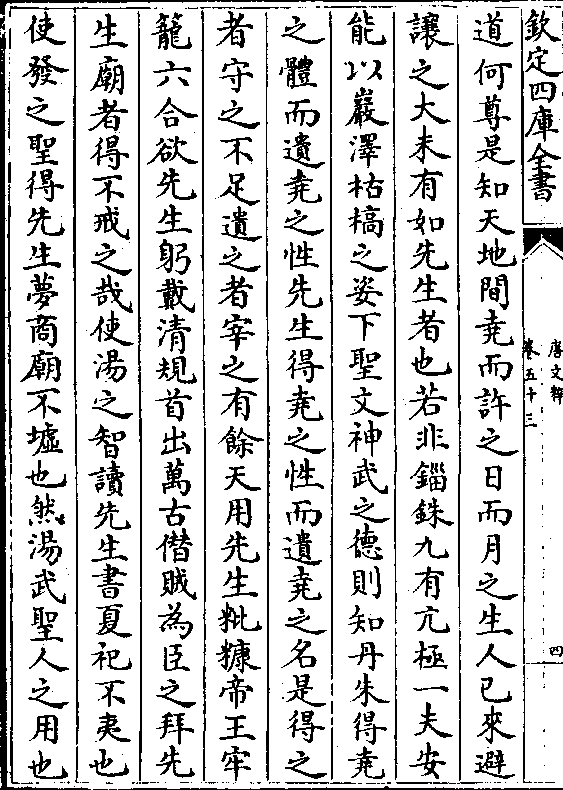 欽定四庫全書
唐文粹
卷五十三
四
道何尊是知天地間堯而許之日而月之生人已來避
讓之大未有如先生者也若非錙銖九有亢極一夫安
能以巖澤枯槁之姿下聖文神武之德則知丹朱得堯
之體而遺堯之性先生得堯之性而遺堯之名是得之
者守之不足遺之者宰之有餘天用先生粃糠帝王牢
籠六合欲先生躬戴清規首出萬古僭賊為臣之拜先
生廟者得不戒之哉使湯之智讀先生書夏祀不夷也
使發之聖得先生夢商廟不墟也然湯武聖人之用也